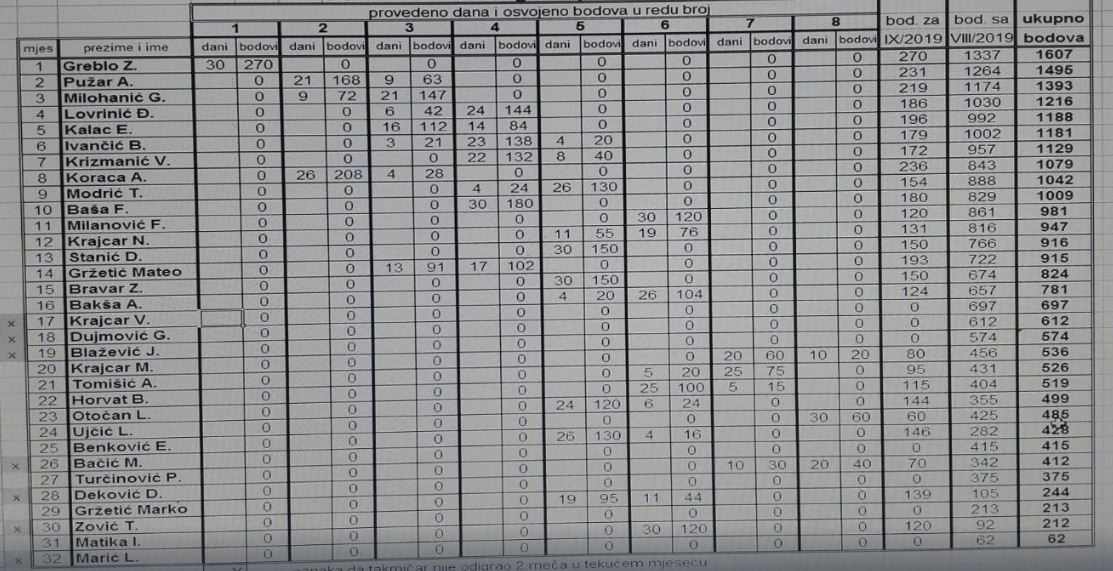 provedeno dana i osvojeno bodova u redu broj
1 2 3 4 5 6 7 8 bod. za bod. sa ukupno
mjes prezime i ime dani bodovi dani bodovi dani bodovi dani bodovi dani bodovi dani bodovi dani bodovi dani bodovi IX/2019 VIII/2019 bodova
1 Greblo Z. 30 270 0 0 0 0 0 0 0 270 1337 1607
2 Pužar A. 0 21 168 9 63 0 0 0 0 0 231 1264 1495
3 Milohanić G. 0 9 72 21 147 0 0 0 0 0 219 1174 1393
4 Lovrinić Đ. 0 0 6 42 24 144 0 0 0 0 186 1030 1216
5 Kalac E. 0 0 16 112 14 84 0 0 0 0 196 992 1188
6 Ivančić B. 0 0 3 21 23 138 4 20 0 0 0 179 1002 1181
7 Krizmanić V. 0 0 0 22 132 8 40 0 0 0 172 957 1129
8 Koraca A. 0 26 208 4 28 0 0 0 0 0 236 843 1079
9 Modrić T. 0 0 0 4 24 26 130 0 0 0 154 888 1042
10 Baša F. 0 0 0 30 180 0 0 0 0 180 829 1009
11 Milanović F. 0 0 0 0 0 30 120 0 0 120 861 981
12 Krajcar N. 0 0 0 0 11 55 19 76 0 0 131 816 947
13 Stanić D. 0 0 0 0 30 150 0 0 0 150 766 916
14 Gržetić Mateo 0 0 13 91 17 102 0 0 0 0 193 722 915
15 Bravar Z. 0 0 0 0 30 150 0 0 0 150 674 824
16 Bakša A. 0 0 0 0 4 20 26 104 0 0 124 657 781
x 17 Krajcar V. 0 0 0 0 0 0 0 0 0 697 697
x 18 Dujmović G. 0 0 0 0 0 0 0 0 0 612 612
x 19 Blažević J. 0 0 0 0 0 0 0 0 0 574 574
20 Krajcar M. 0 0 0 0 0 0 20 60 10 20 80 456 536
21 Tomišić A. 0 0 0 0 0 5 20 25 75 0 95 431 526
22 Horvat B. 0 0 0 0 0 25 100 5 15 0 115 404 519
23 Otočan L. 0 0 0 0 24 120 6 24 0 0 144 355 499
24 Ujčić L. 0 0 0 0 0 0 0 30 60 60 425 485
25 Benković E. 0 0 0 0 26 130 4 16 0 0 146 282 428
x 26 Bačić M. 0 0 0 0 0 0 0 0 0 415 415
27 Turčinović P. 0 0 0 0 0 0 10 30 20 40 70 342 412
x 28 Deković D. 0 0 0 0 0 0 0 0 0 375 375
29 Gržetić Marko 0 0 0 0 19 95 11 44 0 0 139 105 244
x 30 Zović T. 0 0 0 0 0 0 0 0 0 213 213
31 Matika I. 0 0 0 0 0 30 120 0 0 120 92 212
x 32 Marić L. 0 0 0 0 0 0 0 0 0 62 62
x oznaka da takmičar nije odigrao 2 meča u tekućem mjesecu